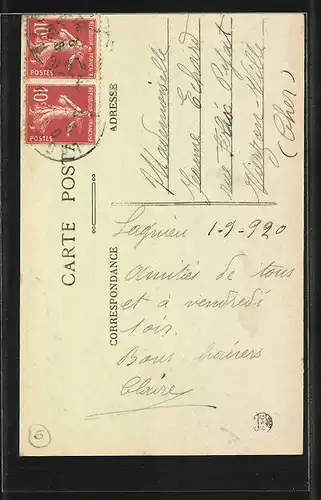 CARTE POSTALE
CORRESPONDANCE
Lagnieu 1-9-920
Amitiés de tous
et à vendredi
soir.
Bons baisers
Claire
ADRESSE
Mademoiselle
Jeanne
rue Félix Pyat
Vierzon-Ville
(Cher)
REPUBLIQUE FRANÇAISE
10c
POSTES
REPUBLIQUE FRANÇAISE
10c
POSTES